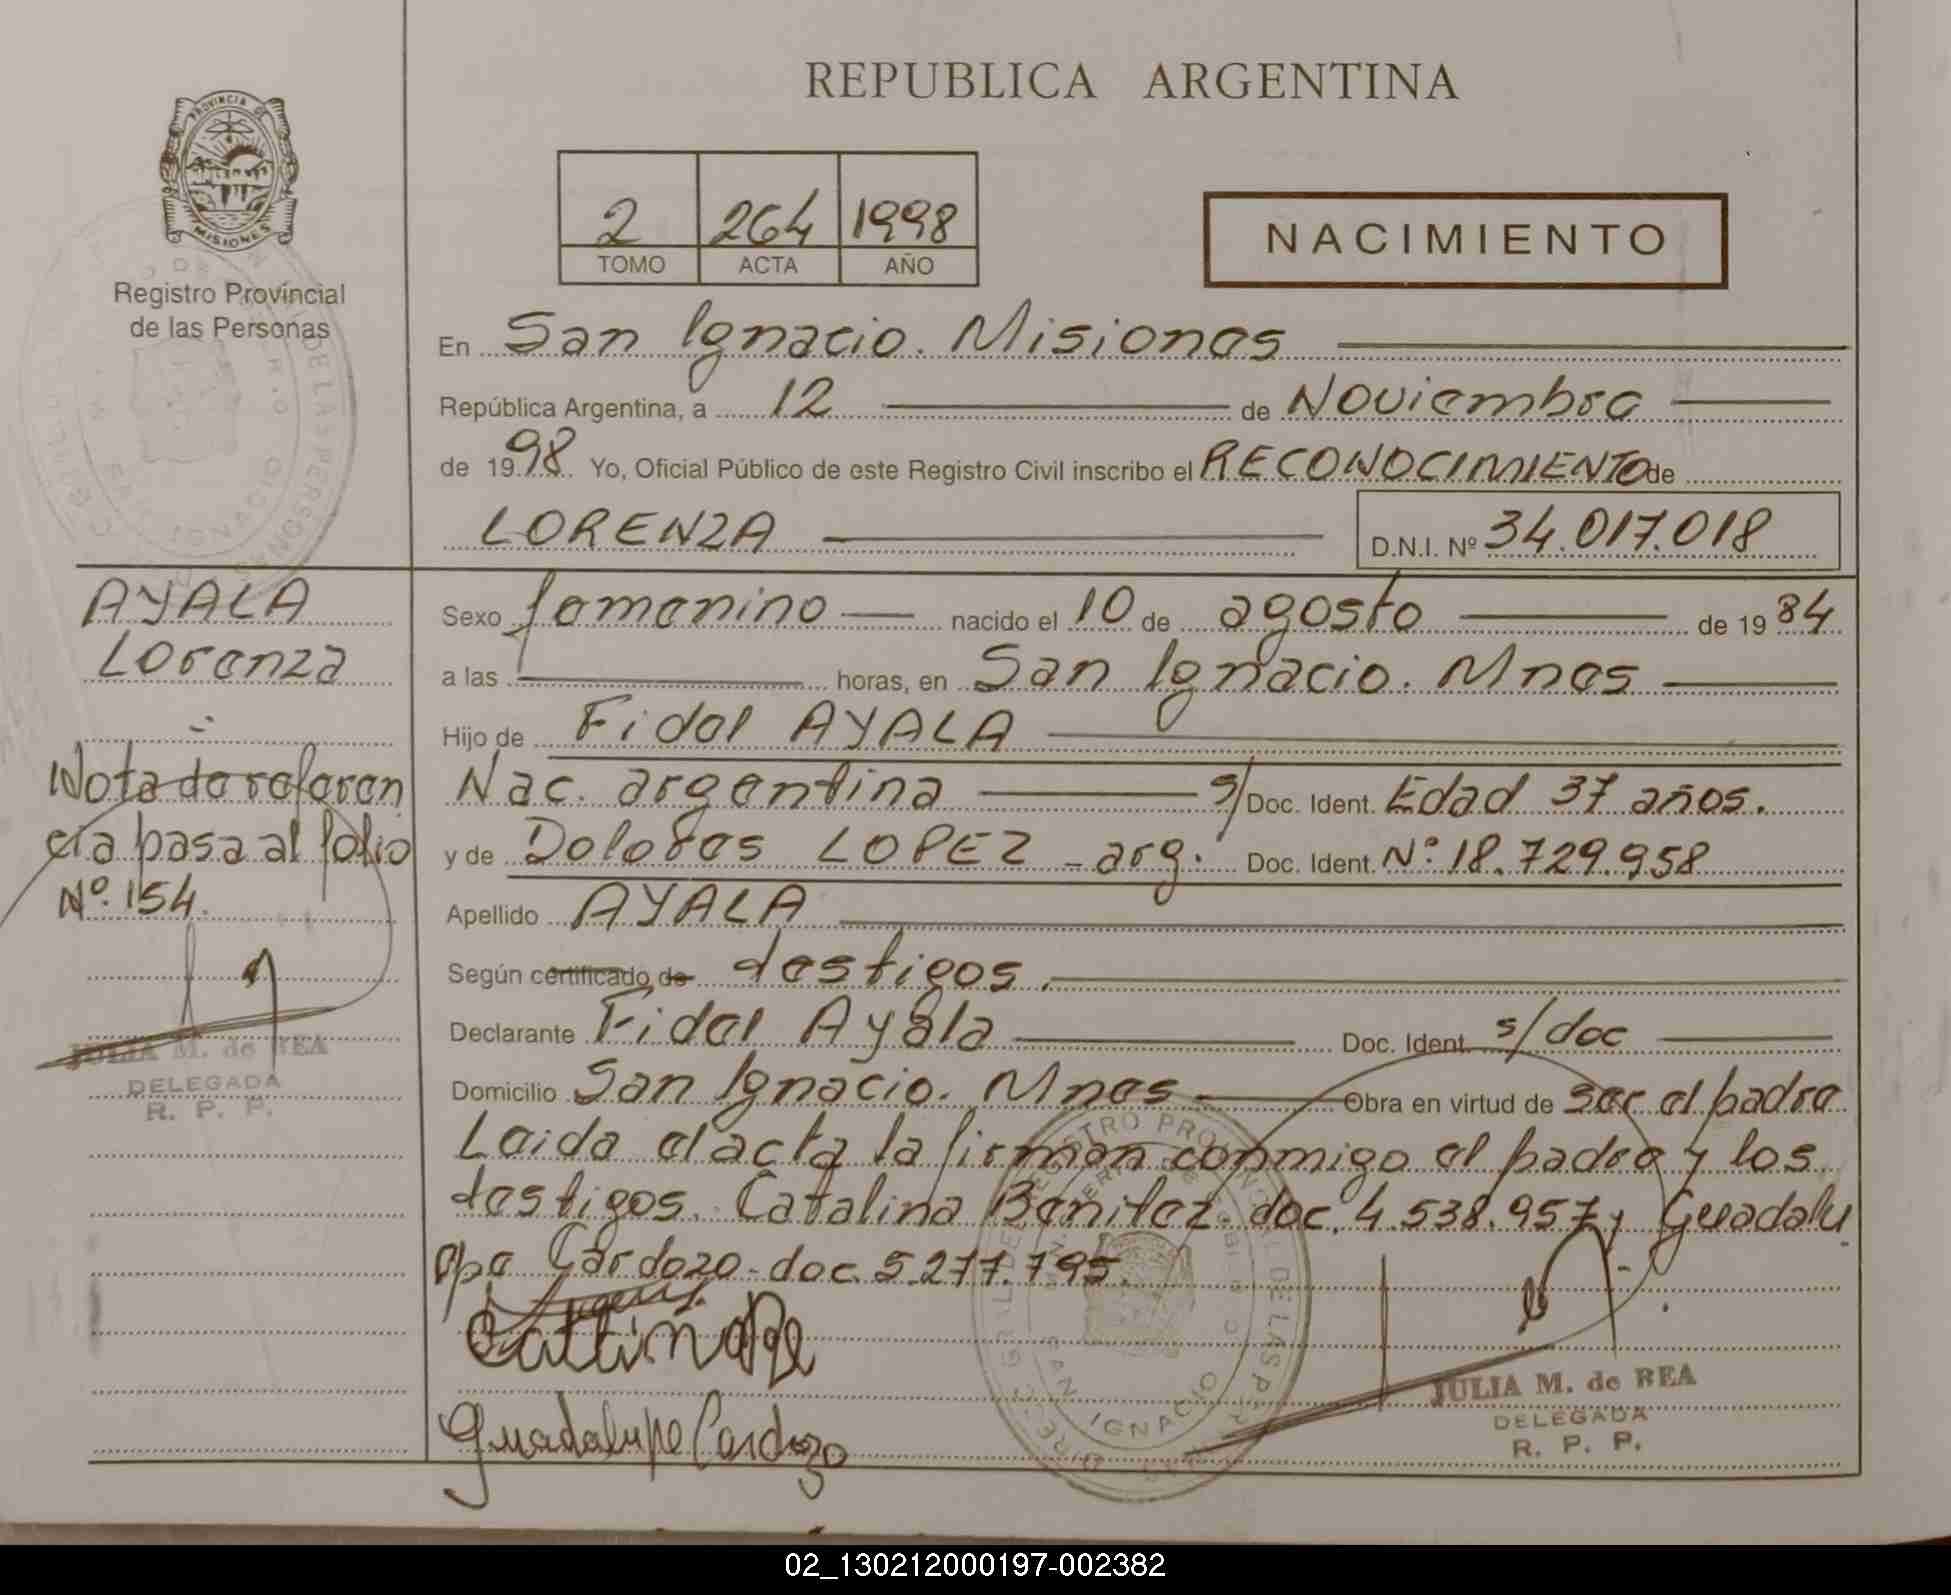 REPUBLICA ARGENTINA
PROVINCIA DE
MISIONES
Registro Provincial
de las Personas
2 264 1998
TOMO ACTA AÑO
NACIMIENTO
En San Ignacio. Misiones
República Argentina, a 12 de Noviembre
de 1998 Yo, Oficial Público de este Registro Civil inscribo el RECONOCIMIENTO de
LORENZA D.N.I. Nº 34.017.018
AYALA
Lorenza
Nota de referen
cia pasa al folio
Nº. 154.
JULIA M. de REA
DELEGADA
R. P. P.
Sexo femenino nacido el 10 de agosto de 1984
a las horas, en San Ignacio. Mnes
Hijo de Fidel AYALA
Nac. argentina s/ Doc. Ident. Edad 37 años.
y de Dolores LOPEZ - arg. Doc. Ident. Nº. 18.729.958
Apellido AYALA
Según certificado de testigos.
Declarante Fidel Ayala Doc. Ident. s/doc
Domicilio San Ignacio. Mnes Obra en virtud de ser el padre
Leida el acta la firman conmigo el padre y los
testigos. Catalina Benitez. doc. 4.538.957 y Guadalu
pe Cardozo - doc. 5.277.795.
Guadalupe Cardozo
JULIA M. de REA
DELEGADA
R. P. P.
SAN IGNACIO
02_130212000197-002382